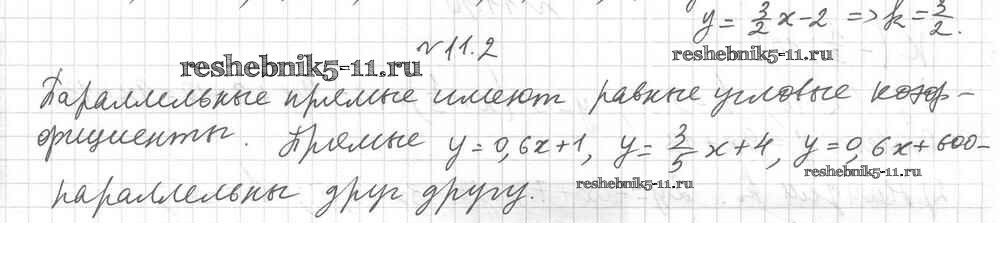 y = 3/2 x - 2 => k = 3/2.
№ 11.2
reshebnik5-11.ru
reshebnik5-11.ru
Параллельные прямые имеют равные угловые коэф-
фициенты. Прямые y = 0,6x + 1, y = 3/5 x + 4, y = 0,6x + 600 -
reshebnik5-11.ru
reshebnik5-11.ru
параллельны друг другу.